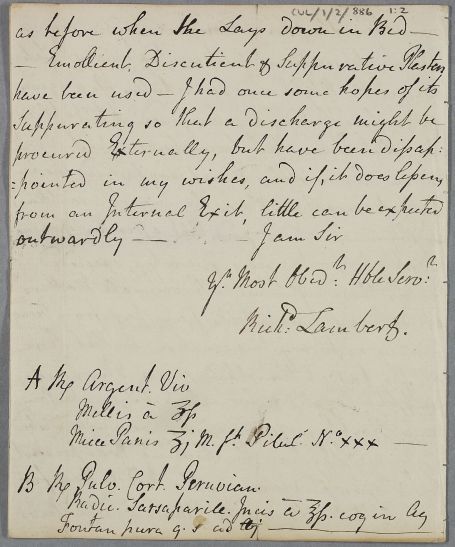 CUL/1/2/886 1:2
as before when She Lays down in Bed —
— Emollient, Discutient & Suppurative Plasters
have been used — I had once some hopes of its
Suppurating so that a discharge might be
procured Externally, but have been dissap=
=pointed in my wishes, and if, it does Open,
from an Internal Exit, little can be expected
outwardly — — I am Sir
Yr. Most Obedt. Hble Servt:
Richd. Lambert.
A ℞ Argent. Viv
Mellis ā ʒſs
Micæ Panis ʒj M. ft. Pilul. No. xxx —
B ℞ Pulv. Cort. Peruvian.
Radic. Sarsaparile. Incis ā ℥ſs. coq in Aq
Fontan pura q. s ad